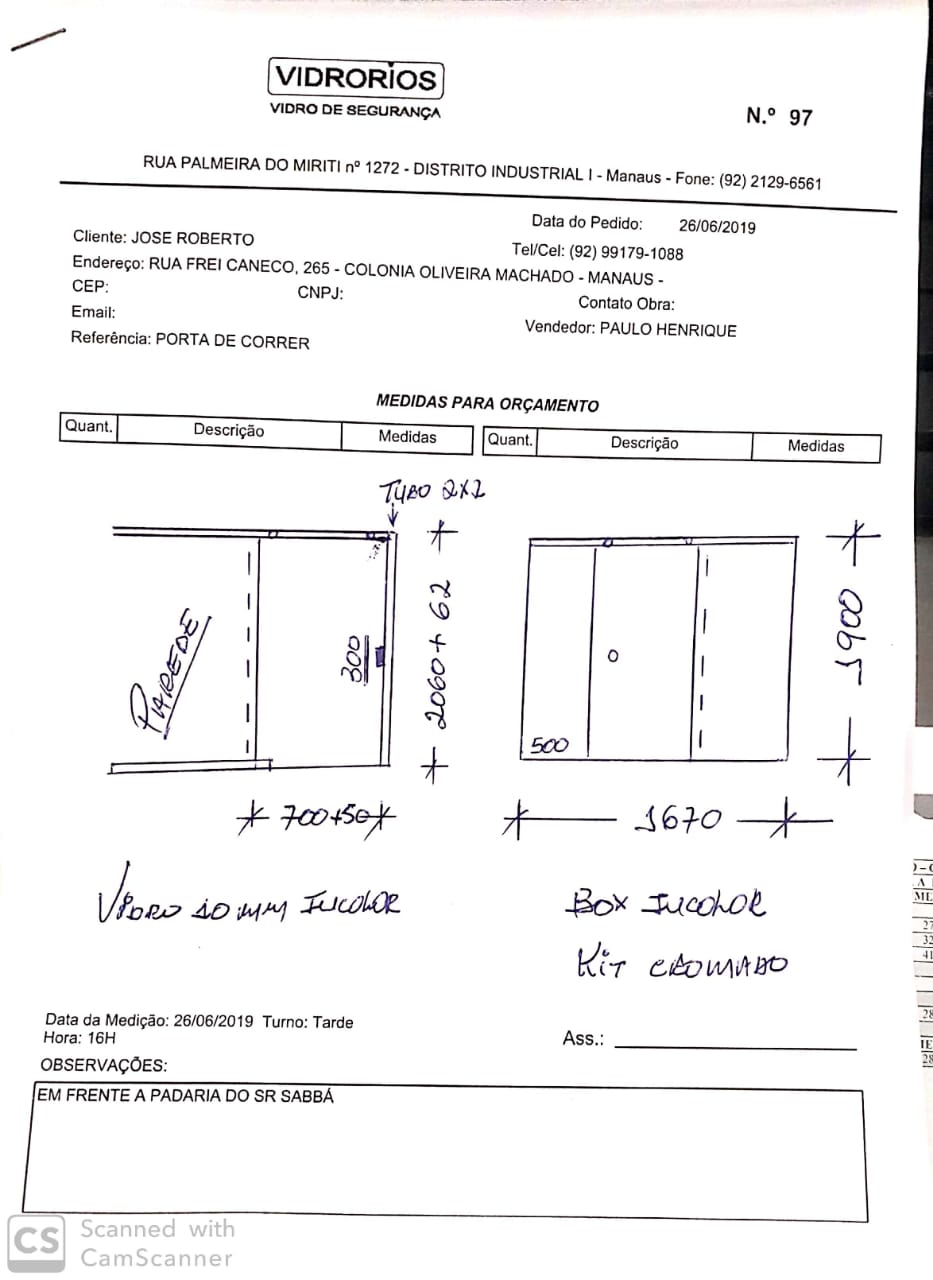 VIDRORIOS
VIDRO DE SEGURANÇA
N.º 97
RUA PALMEIRA DO MIRITI nº 1272 - DISTRITO INDUSTRIAL I - Manaus - Fone: (92) 2129-6561
Data do Pedido: 26/06/2019
Cliente: JOSE ROBERTO
Tel/Cel: (92) 99179-1088
Endereço: RUA FREI CANECO, 265 - COLONIA OLIVEIRA MACHADO - MANAUS -
CEP: CNPJ: Contato Obra:
Email:
Vendedor: PAULO HENRIQUE
Referência: PORTA DE CORRER
MEDIDAS PARA ORÇAMENTO
Quant. Descrição Medidas Quant. Descrição Medidas
TUBO 2X1
PAREDE
300
2060+62
700+50
500
1900
1670
VIDRO 10 MM INCOLOR
BOX INCOLOR
KIT CROMADO
Data da Medição: 26/06/2019 Turno: Tarde
Hora: 16H
Ass.:
OBSERVAÇÕES:
EM FRENTE A PADARIA DO SR SABBÁ
CS Scanned with
CamScanner